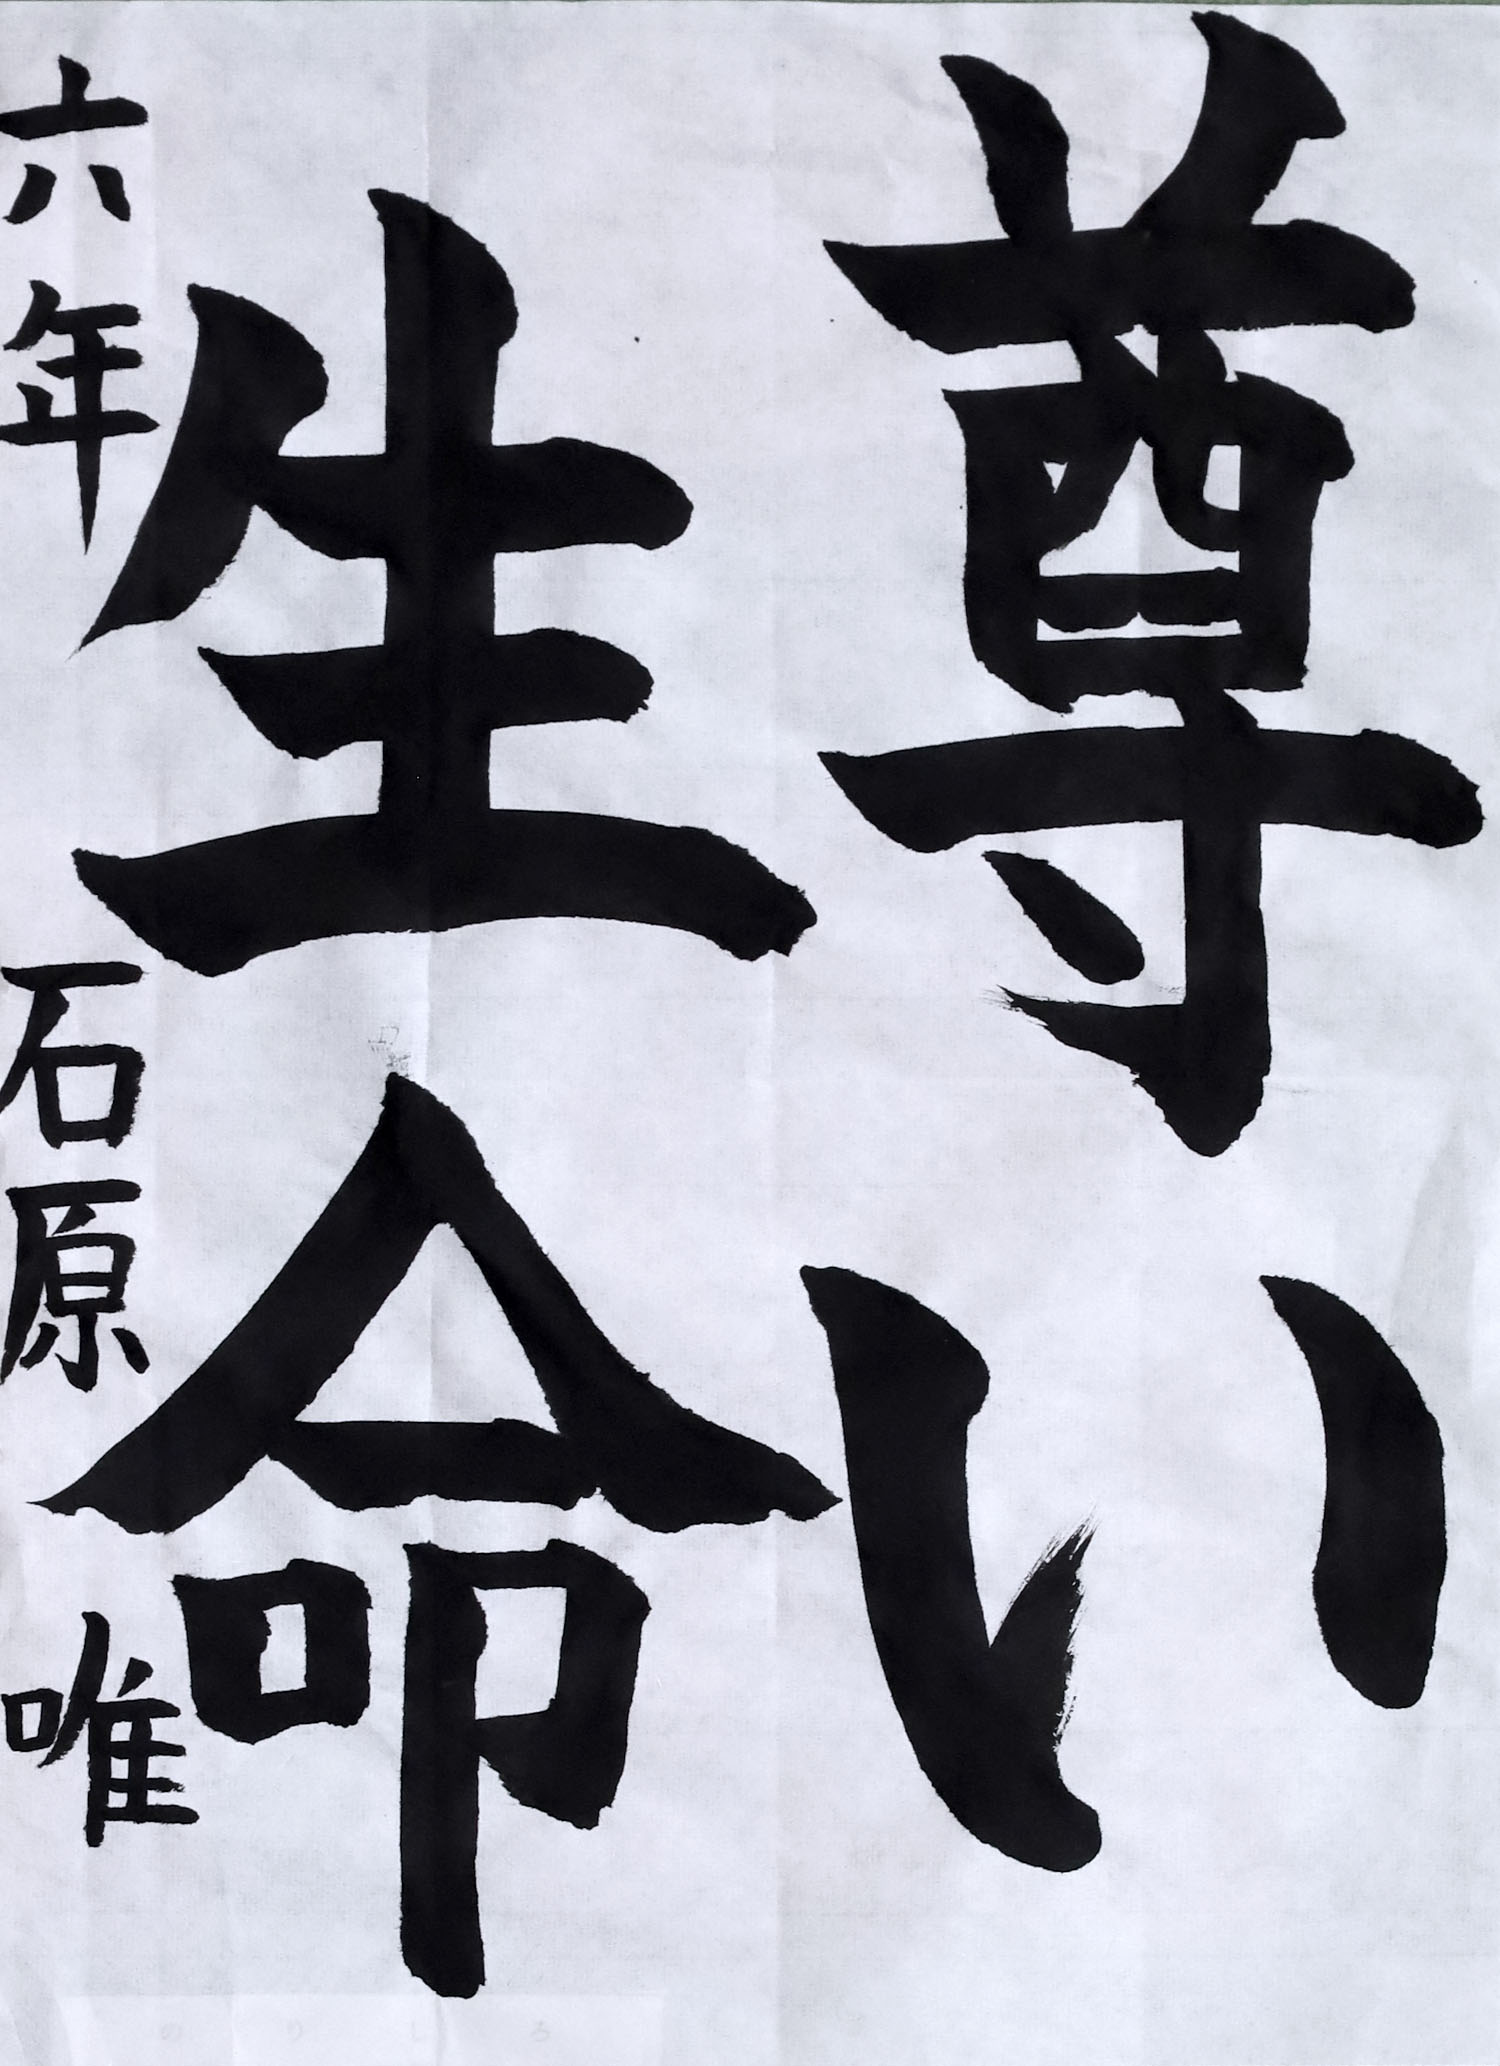 尊い
生命
六年 石原 唯